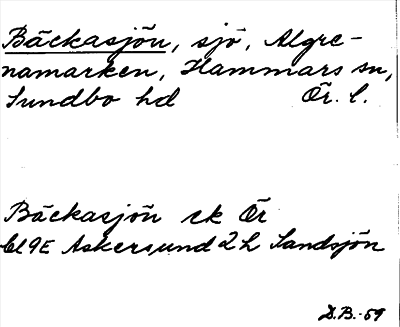 Bäckasjön, sjö, Algre-
namarken, Hammars sn,
Sundbo hd Ör. l.
Bäckasjön ek Ör
9E Askersund 2 h Sandsjön
D.B. -59